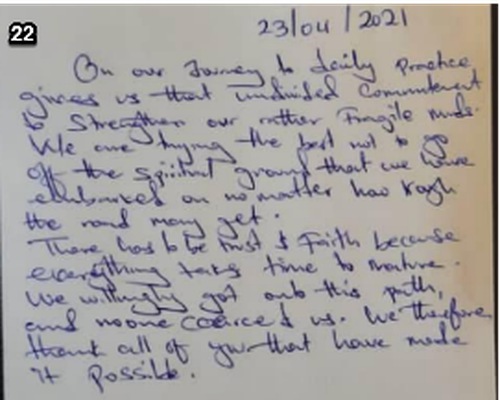 22
23/04/2021
On our Journey to daily practice
gives us that undivided commitment
to Strengthen our rather Fragile minds.
We are trying the best not to go
off the spiritual ground that we have
embarked on no matter how rough
the road may get.
There has to be trust & Faith because
everything takes time to mature.
We willingly got onto this path,
and no one coerced us. We therefore
thank all of you that have made
it possible.